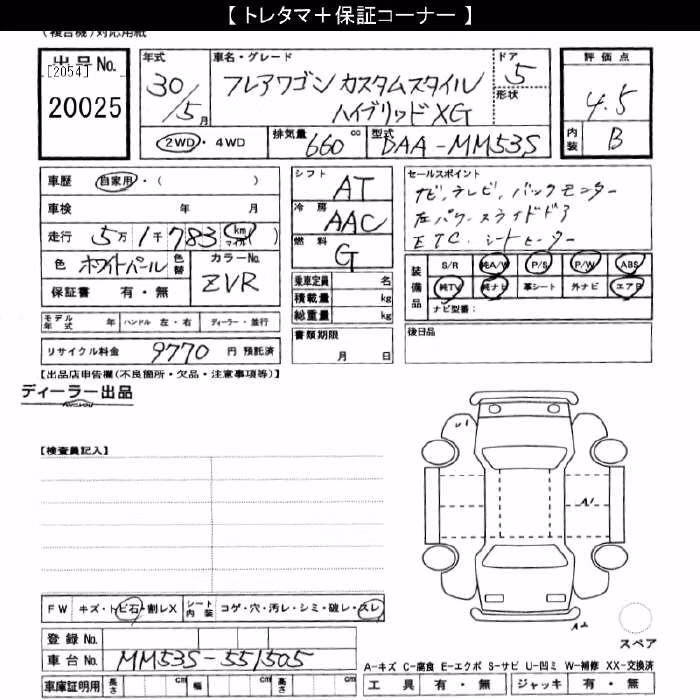 【 トレタマ＋保証コーナー 】
(複合機)対応用紙
出品 No.
[2054]
20025
年式
30/5月
車名・グレード
フレアワゴン カスタムスタイル
ハイブリッドXG
ドア
5
形状
評価点
4.5
内装
B
2WD・4WD
排気量 660 cc
型式 DAA-MM53S
車歴 自家用・( )
車検 年 月
走行 5万1千783 km マイル( )
色 ホワイトパール 色替
カラーNo. ZVR
保証書 有・無
モデル年式 年 ハンドル 左・右 ディーラー・並行
リサイクル料金 9770 円 預託済
シフト AT
冷房 AAC
燃料 G
乗車定員 名
積載量 kg
総重量 kg
書類期限
月 日
セールスポイント
ナビ,テレビ,バックモニター
左パワースライドドア
ETC.シートヒーター
装備品
S/R 純A/W P/S P/W ABS
純TV 純ナビ 革シート 外ナビ エアB
ナビ型番：
後日品
【出品店申告欄(不良箇所・欠品・注意事項等)】
ディーラー出品
【検査員記入】
U1
A1
A2
スペア
FW キズ・トビ石・割レX シート内装 コゲ・穴・汚レ・シミ・破レ・スレ
登録 No.
車台 No. MM53S-551505
車庫証明用 長さ cm 幅 cm 高さ cm
A-キズ C-腐食 E-エクボ S-サビ U-凹ミ W-補修 XX-交換済
工具 有・無 ジャッキ 有・無